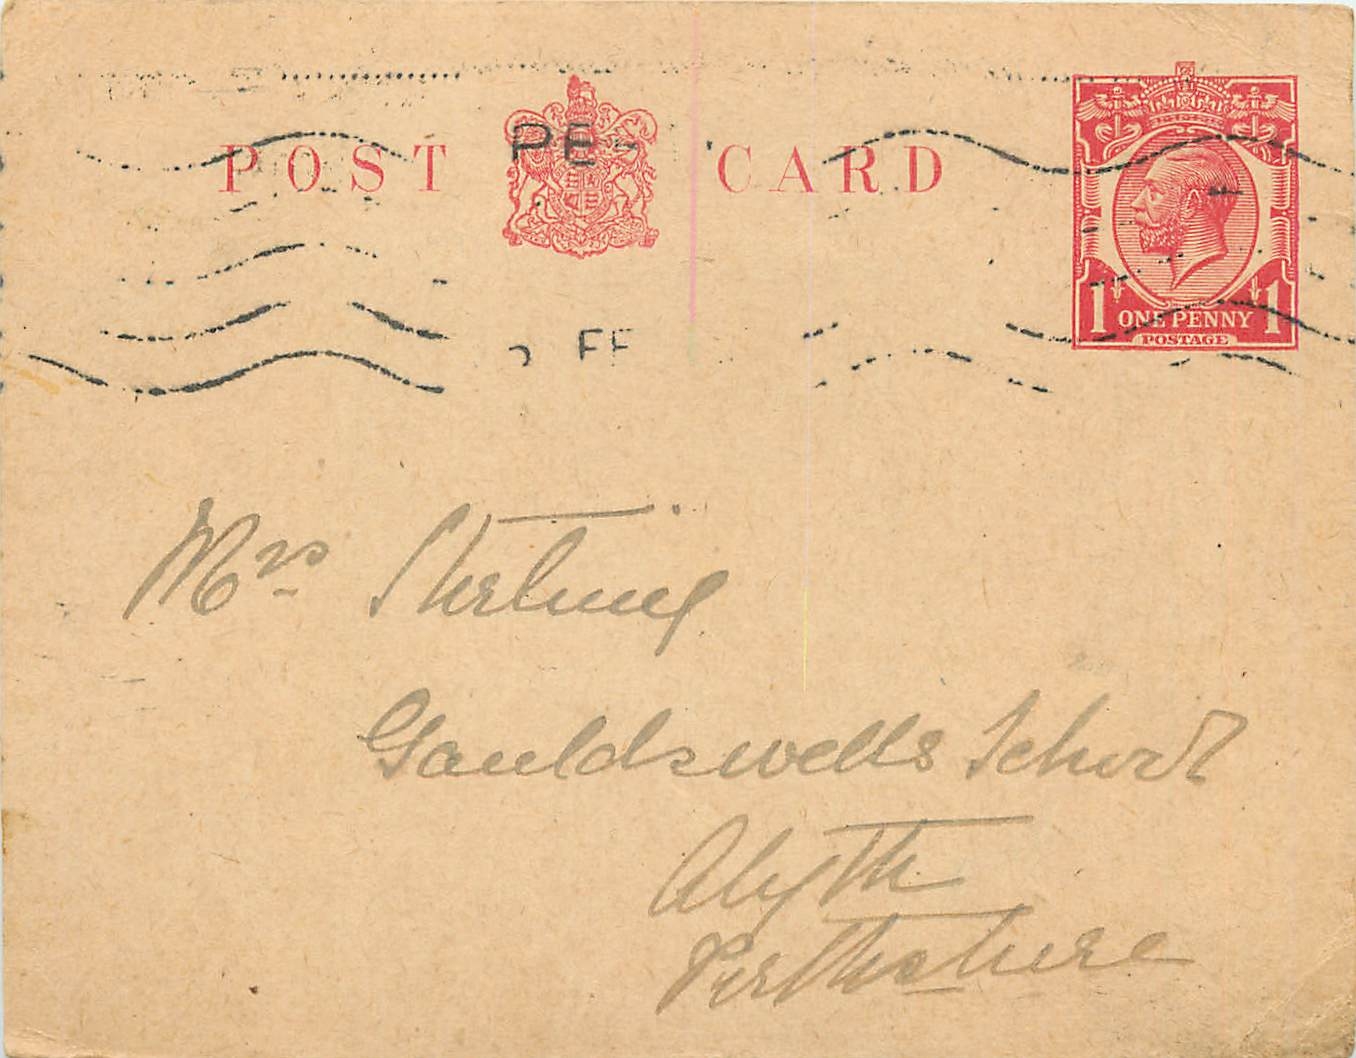 POST CARD
PE
FE
1 ONE PENNY 1
POSTAGE
Mrs Stirling
Gauldswells School
Alyth
Perthshire